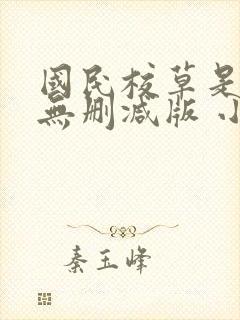 國民校草是
無刪減版 小
秦玉峰